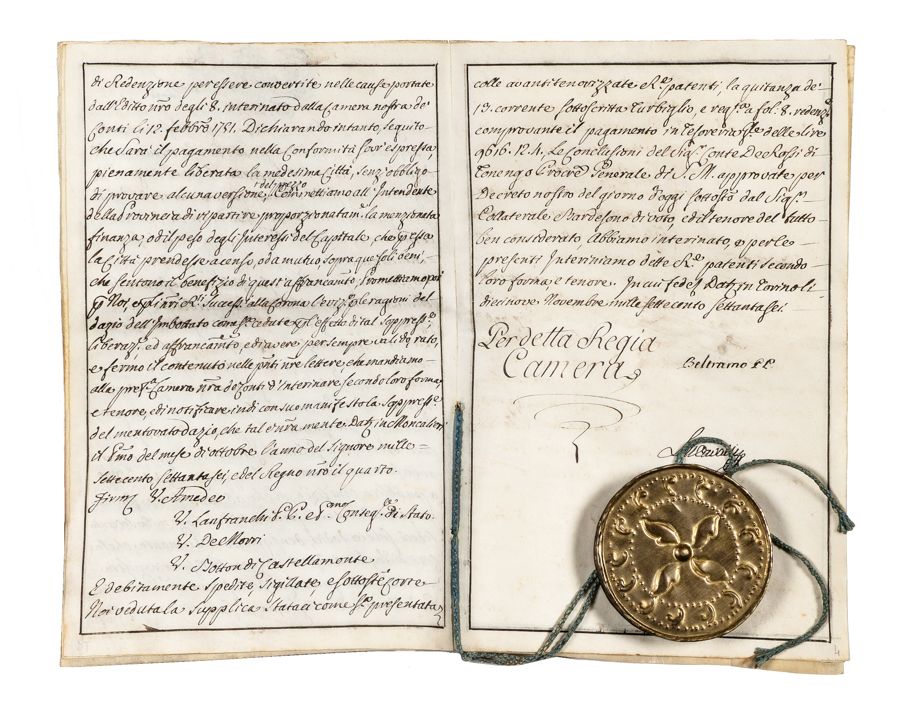 di Redenzione per essere convertite nelle cause portate
dall'Editto nr̃o degli 8. interinato dalla Camera nostra de'
Conti li 12. febbro 1751. Dichiarando intanto, seguito
che sarà il pagamento nella Conformità sovr'espressa,
pienamente liberata la medesima Città, senz'obbligo
di provare alcuna versione, Commettiamo all'Intendente
della Provincia di ripartire proporzionatam.te la menzonata
finanza, od il peso degli Interessi del Capitale, che
la Città prendesse a censo, od a mutuo sopra que' soli beni,
che sentono il benefizio di quest'affrancam.to Promettiamo poi
Noi, e Succes.ri alla Corona l'evizione, e ragioni del
dazio dell'Imbottato come s.a cedute, l'effetto di tal Soppress.e
liberaz.e, ed affrancam.to, ed avere per sempre valido, rato,
e fermo il contenuto nelle pñti nr̃e lettere, che mandiamo
alla pref.ta Camera nr̃a de' Conti d'interinare secondo loro forma,
e tenore, e di notificare indi con suo manifesto la Soppress.e
del mentovato dazio, che tal è nr̃a mente. Dat. in Moncalieri
il Primo del mese di Ottobre l'anno del Signore mille
settecento settanta sei, e del Regno nr̃o il quarto.
Firm. V. Amedeo
V. Lanfranchi P.P. e Conseg.e di Stato.
V. De Morri
V. Botton di Castellamonte
E debitamente spedite, sigillate, e sottoscritte
Noi veduta la supplica stataci come s.a presentata
colle avanti tenorizzate R.e patenti, la quitanza de'
13. corrente sottoscritta Turbiglio, e reg.ta a fol. 8. redenz.e
comprovante il pagamento in Tesoreria delle lire
9616. 12. 4, Le Conclusioni del Sig.r Conte De Rossi di
Tonengo Proc.re Generale di S. M. approvate per
Decreto nostro del giorno d'oggi sottos.to dal Sig.r
Collaterale Bardesono di voto, ed il tenore del tutto
ben considerato, Abbiamo interinato, e per le
presenti Interiniamo dette R.e patenti secondo
loro forma, e tenore. In cui fede Dat. in Torino li
diecinove Novembre mille settecento settanta sei.
Per detta Regia
Camera
Beltramo
4